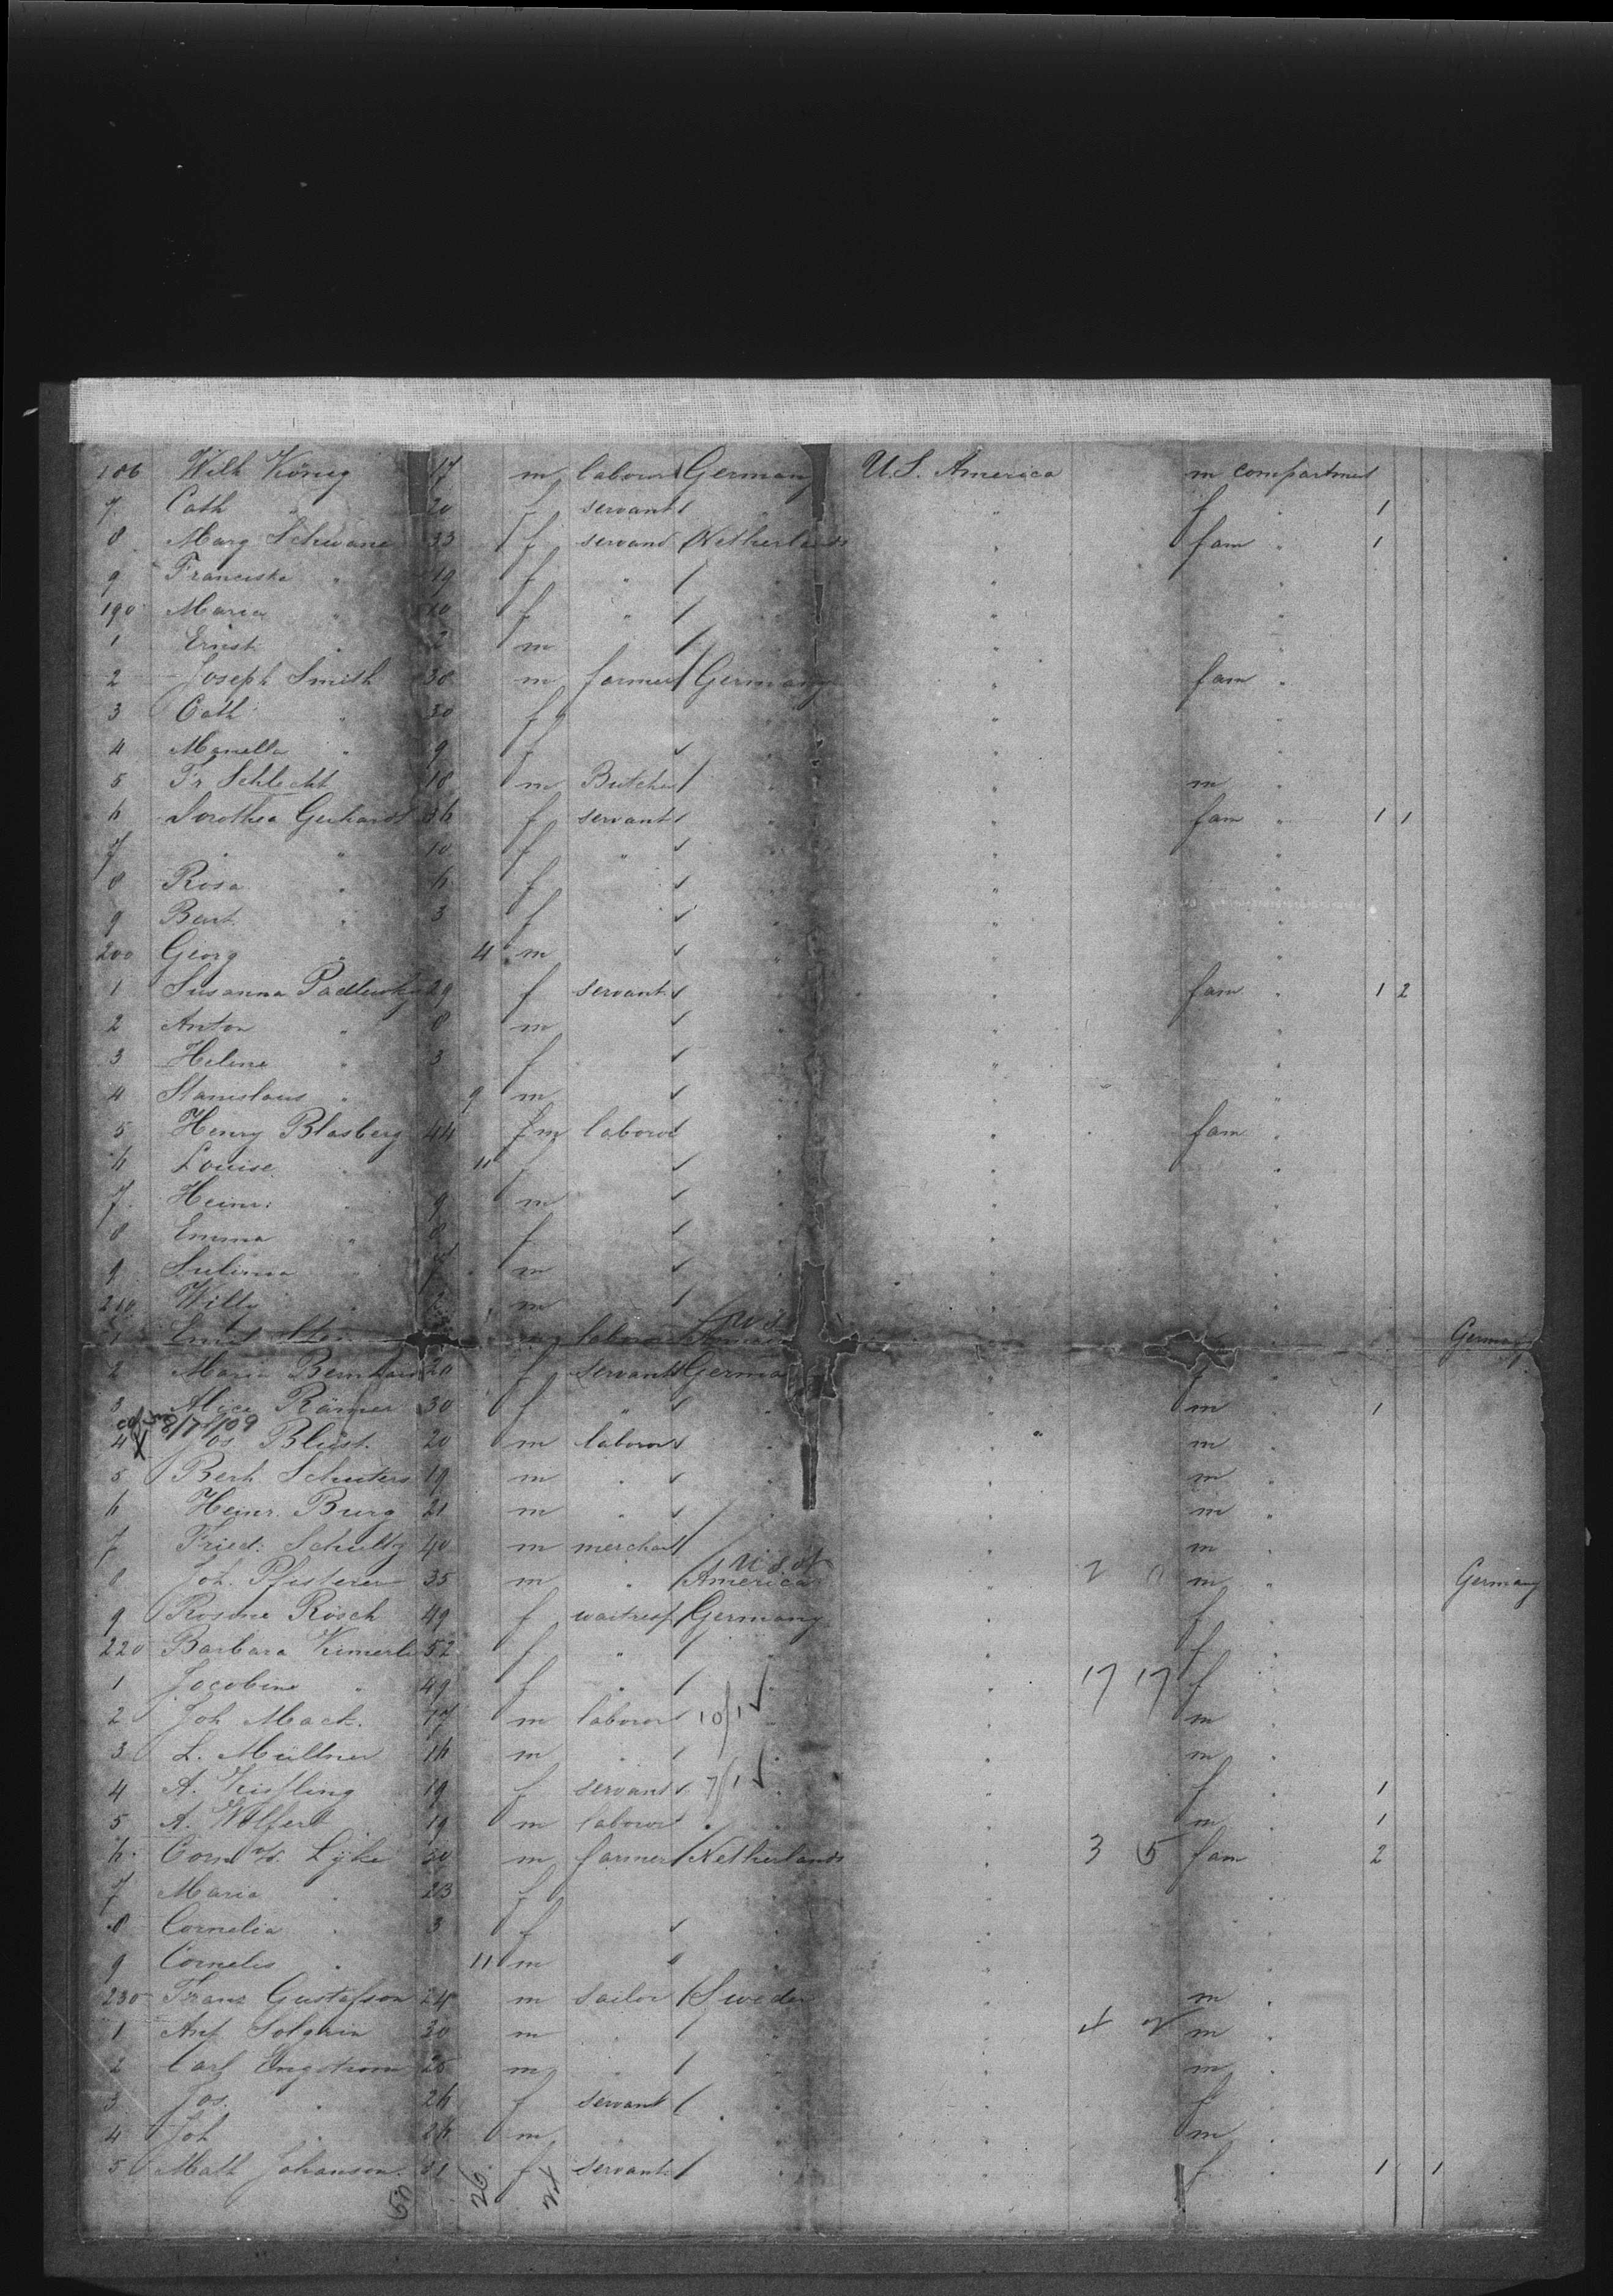 186 Wilh König 17 m laborer Germany U.S. America m compartment
7 Cath " 20 f servant " f " 1
8 Marg Schwane 33 f servant Netherlands " fam " 1
9 Franciska " 19 f " "
190 Maria " 10 f " "
1 Ernst " m "
2 Joseph Smith 38 m farmer Germany " fam "
3 Cath " 30 f "
4 Manella " 9 f "
5 Fr Schlecht 18 m Butcher " m "
6 Dorothea Gerhardt 36 f servant " fam " 1 1
7 " " 10 f " "
8 Rosa " 6 f " "
9 Bert " 3 f "
200 Georg " 4 m "
1 Susanna 29 f servant " fam " 1 2
2 Anton " 8 m "
3 Helene " 3 f "
4 Stanislaus " 9 m "
5 Henry Blasberg 44 m laborer " fam "
6 Louise " 11 f "
7 Heinr. " 9 m "
8 Emma " 8 f "
9 " 7 m "
210 Willy " m "
1 laborer U S Germany
2 Maria Bernhard 20 f servant Germa
3 Alice Römer 30 f " " m " 1
8/7/09
4 X Jos Blüst. 20 m laborer " m "
5 Bert Schuters 19 m " " m "
6 Heinr. Burg 21 m " " m "
7 Fried: Schultz 40 m merchant " m "
8 Joh. Pfisterer 35 m " U S of America " 2 0 m " Germany
9 Rosine Rösch 49 f waitress Germany " f "
220 Barbara Kimerle 52 f " " f "
1 Jacobine " 49 f " " 17 17 f "
2 Joh Mack. 17 m laborer 10/1 " m "
3 L. Müllner 16 m " " m "
4 A. Kissling 19 f servant 7/1 " f " 1
5 A. Wolfert 19 m laborer " m " 1
6 Corn v. d. Lyke 30 m farmer Netherlands " 3 5 fam 2
7 Maria " 23 f "
8 Cornelia " 3 f "
9 Cornelis " 11 m "
230 Franz Gustafson 24 m sailor Sweden " m "
1 Solgrin 30 m " " m "
2 Carl Engstrom 25 m " " m "
3 Jos. " 26 f servant " f "
4 Joh " 26 m " " m "
5 Math Johanson 21 f servant " f " 1 1
50 26 24